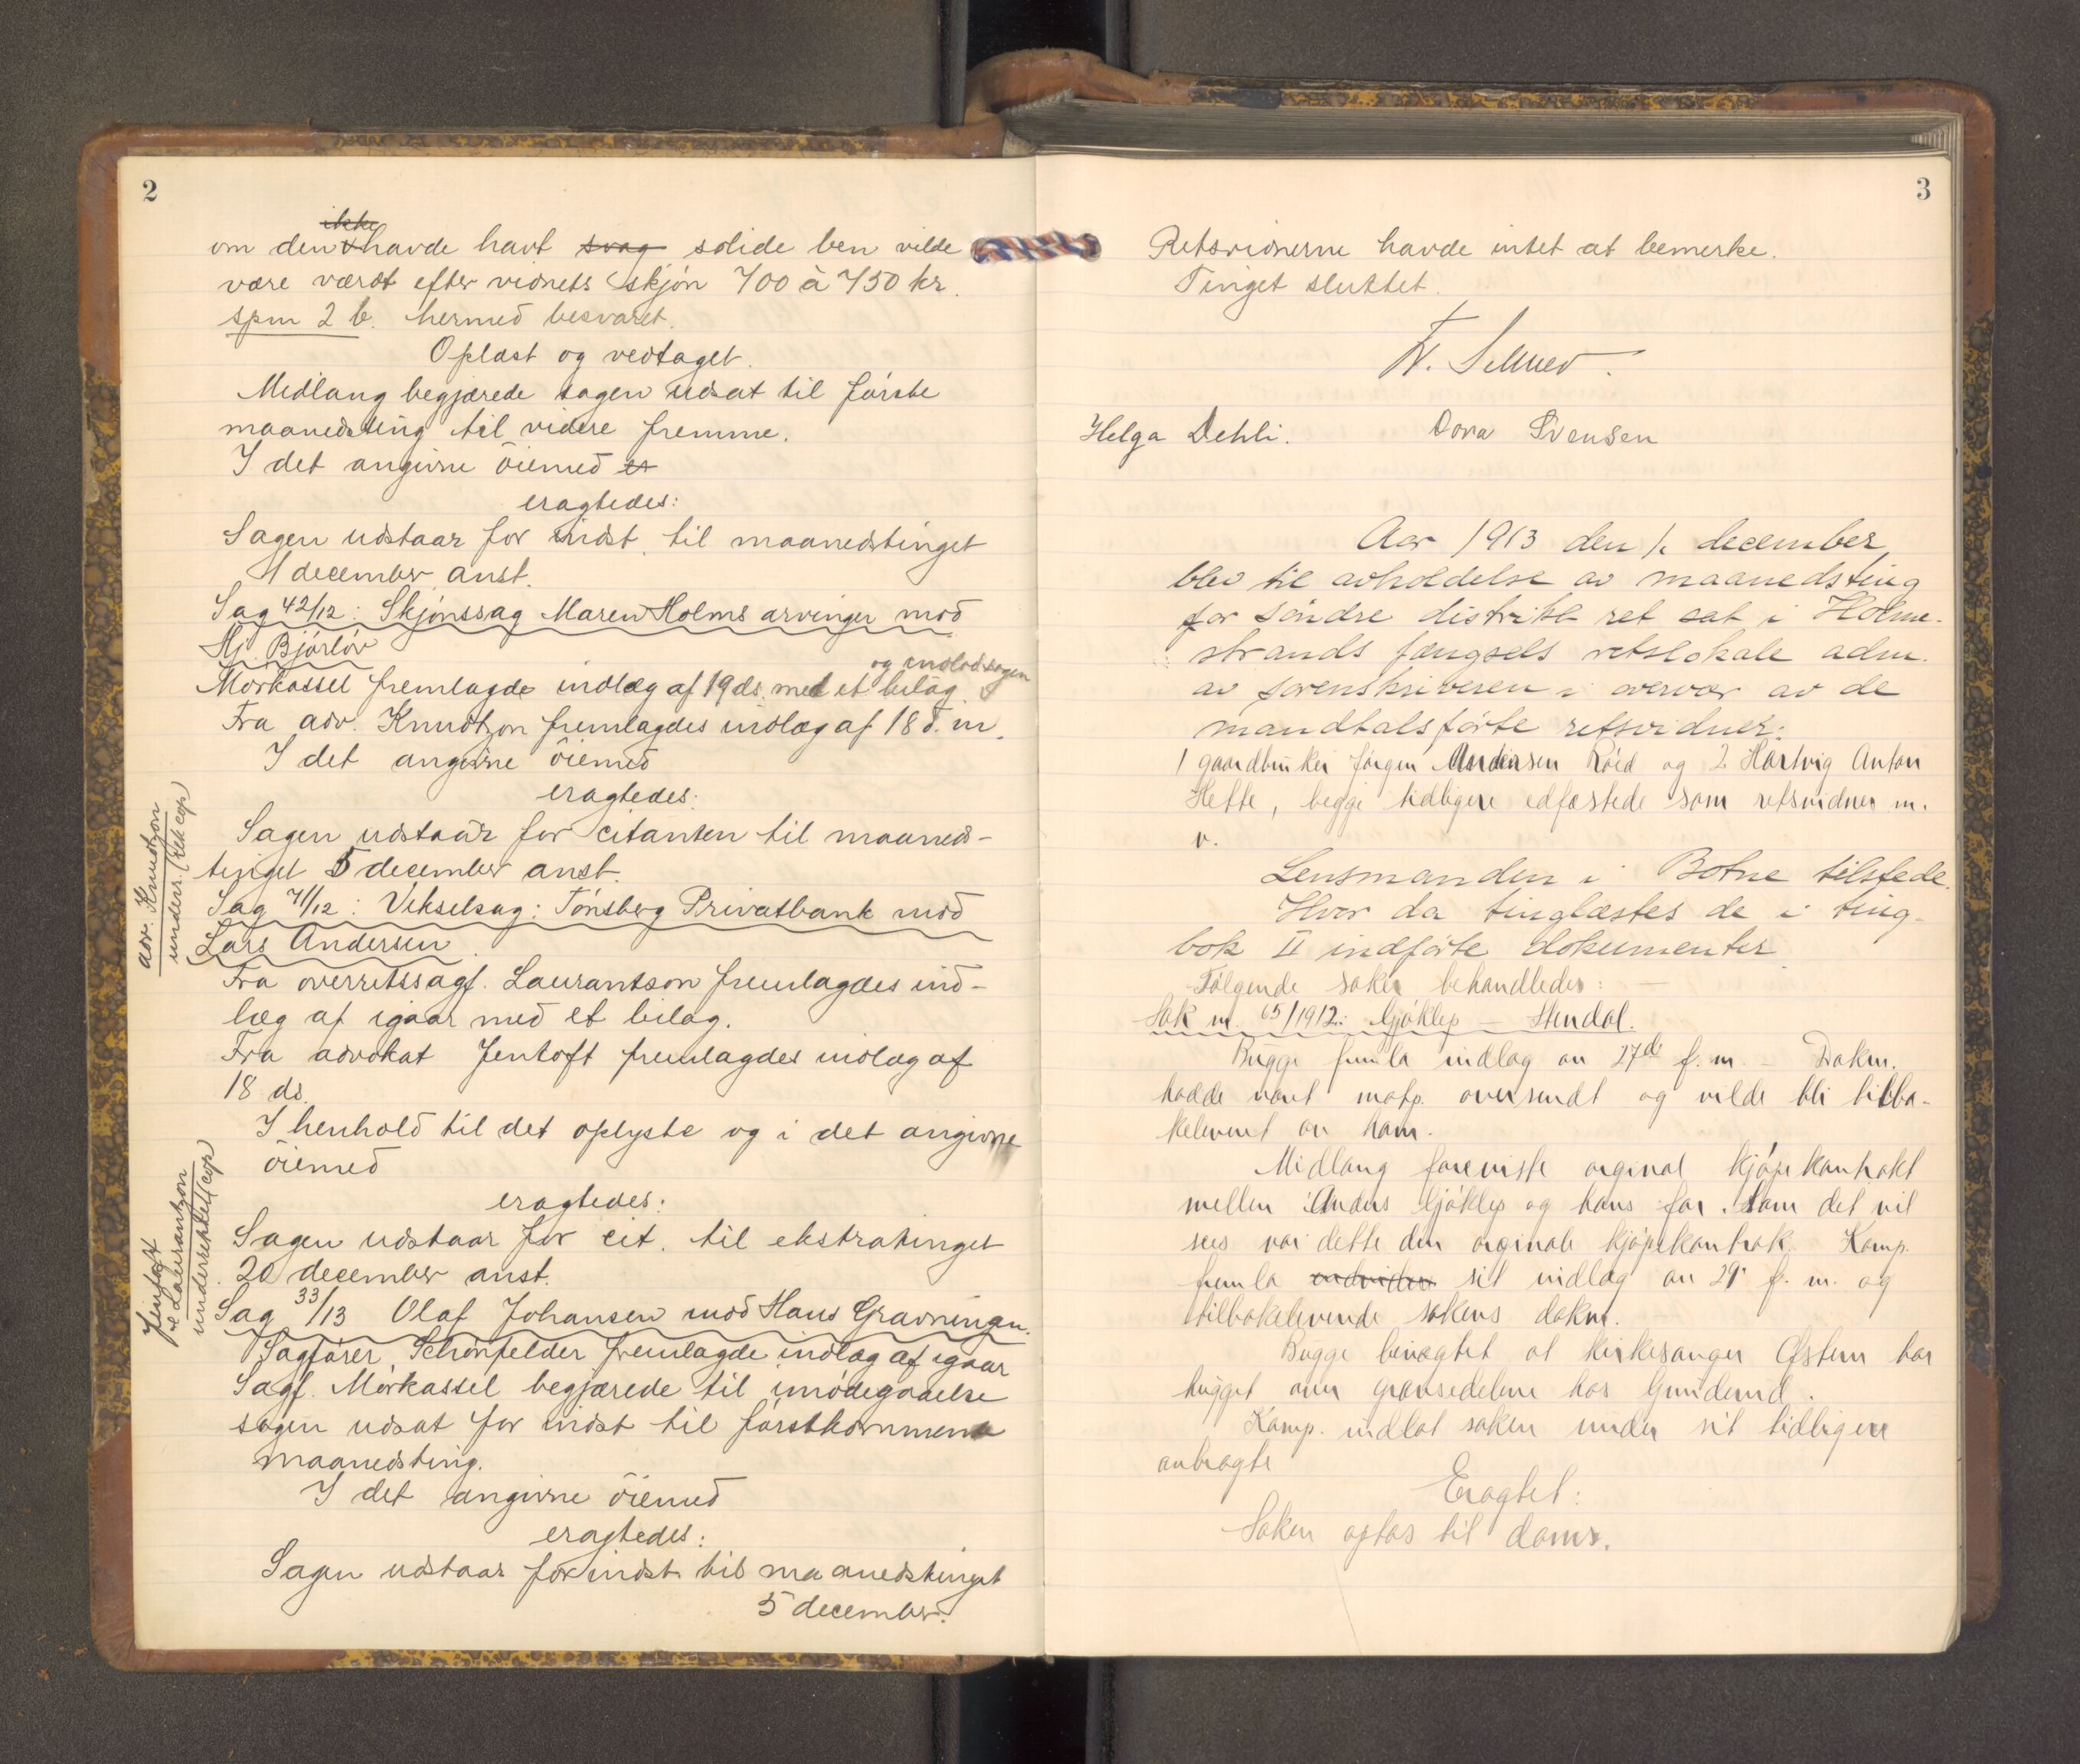 2
ikke
om den havde havt svag solide ben vilde
være værdt efter vidnets skjøn 700 à 750 kr.
spm 2 b. hermed besvaret.
Oplæst og vedtaget.
Midlang begjærede sagen udsat til første
maanedsting til videre fremme.
I det angivne öiemed er
eragtedes:
Sagen udstaar for indst. til maanedstinget
1 december anst.
Sag 42/12: Skjønssag Maren Holms arvinger mod
Hj. Bjørløv
og indlod sagen
Mørkassel fremlagde indlæg af 19 ds. med et bilag
Fra adv. Knudtzon fremlagdes indlæg af 18 d. m.
I det angivne öiemed
eragtedes:
Sagen udstaar for citanten til maaneds-
tinget 5 december anst.
adv. Knudtzon
underr. (ret cop)
Sag 71/12: Vekselsag: Tønsberg Privatbank mod
Lars Andersen
Fra overretssagf. Laurantzon fremlagdes ind-
læg af igaar med et bilag.
Fra advokat Jentoft fremlagdes indlæg af
18 ds.
I henhold til det oplyste og i det angivne
öiemed
eragtedes:
Sagen udstaar for cit. til ekstratinget
20 december anst.
Jentoft
Laurantzon
underrettet (cop)
Sag 33/13 Olaf Johansen mod Hans Gravningen.
Sagfører Schønfelder fremlagde indlæg af igaar
Sagf. Mørkassel begjærede til imødegaaelse
sagen udsat for indst til førstkommende
maanedsting.
I det angivne öiemed
eragtedes:
Sagen udstaar for indst til maanedstinget
5 december.
3
Retsvidnerne havde intet at bemerke.
Tinget sluttet.
Helga Dehli. Dora Svensen
Aar 1913 den 1. december
blev til avholdelse av maanedsting
for søndre distrikt ret sat i Holme-
strands fængsels retslokale adm.
av sorenskriveren i overvær av de
mandtalsførte retsvidner:
1 gaardbruker Jørgen Andersen Røed og 2 Hartvig Anton
Hefte, begge tidligere edfæstede som retsvidner m.
v.
Lensmanden i Botne tilstede.
Hvor da tinglæstes de i ting-
bok II indførte dokumenter
Følgende saker behandledes:
Sak nr. 65/1912: Gjøklep – Stendal.
Bugge fremla indlæg av 27de f. m. – Dokm.
hadde været motp. oversendt og vilde bli tilba-
kelevert av ham.
Midlang foreviste orginal kjøpekontrakt
mellem Anders Gjøklep og hans far. Som det vil
sees var dette den orginale kjøpekontrak. Komp.
fremla sit indlæg av 29 f. m. og
tilbakeleverede sakens dokm.
Bugge benegtet at kirkesanger Østern har
hugget over grænsedelene hos Gunderud.
Komp. indlot saken under sit tidligere
anbragte
Eragtet:
Saken optas til doms.